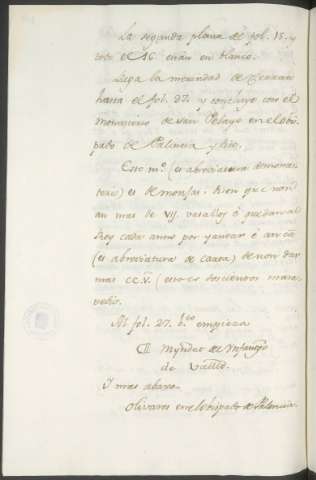 La segunda plana del fol. 15. y
todo el 16 están en blanco.
Llega la merindad de Cerrato
hasta el fol. 27. y concluye con el
Monasterio de San Pelayo en el obis-
pado de Palencia y dice.
Este m.º (es abreviatura de monas-
terio) es de monjas. hien que non
an mas de VII. vasallos é que dan al
Rey cada anno por yantar
(es abreviatura de carta) de non dar
mas CC. (esto es doscientos mara-
vedis.
Al fol. 27. b.to empieza
Myndat de Infantgo
de Vallid.
Y mas abaxo.
Olivares en el obispado de Palencia.